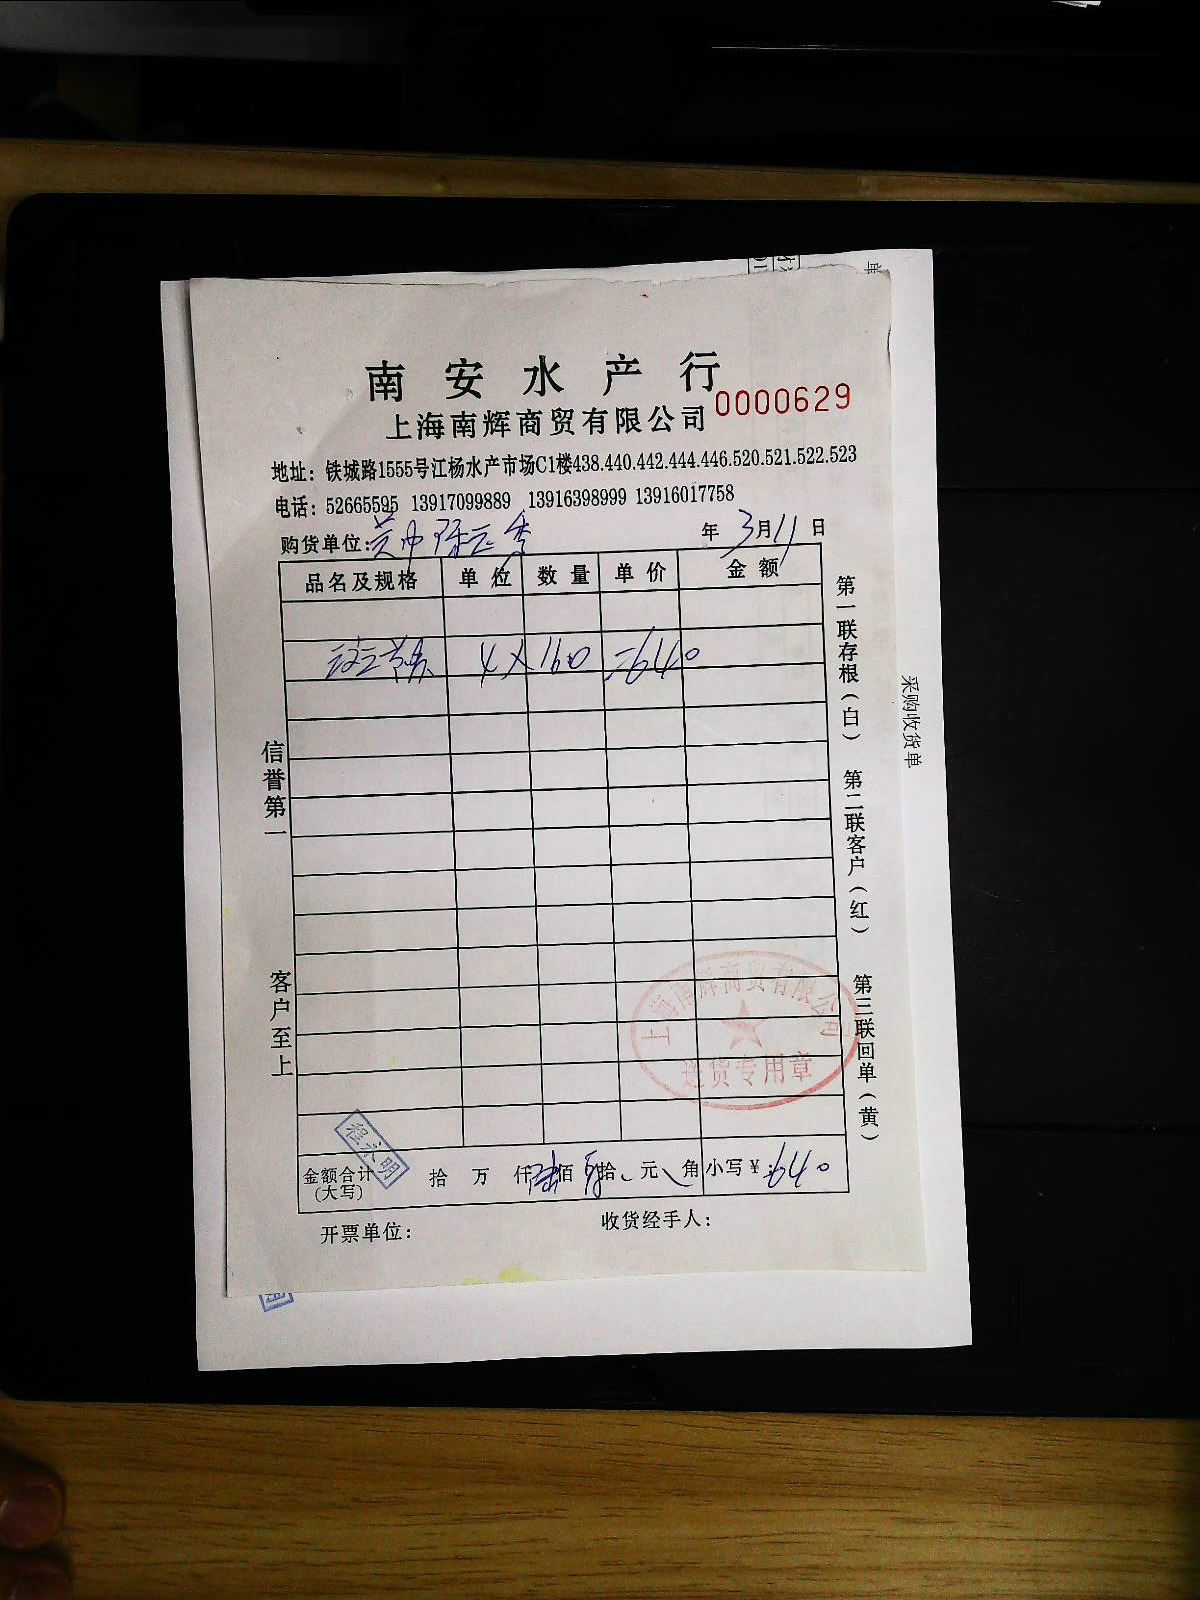 南安水产行
上海南辉商贸有限公司
0000629
地址：铁城路1555号江杨水产市场C1楼438.440.442.444.446.520.521.522.523
电话：52665595 13917099889 13916398999 13916017758
购货单位：
年 3月11日
品名及规格 单位 数量 单价 金额
4 X 160 =640
信誉第一
客户至上
第一联存根（白） 第二联客户（红） 第三联回单（黄）
采购收货单
单
上海南辉商贸有限公司
送货专用章
程永明
金额合计（大写） 拾 万 仟陆佰肆拾 元 角 小写￥：640
开票单位： 收货经手人：